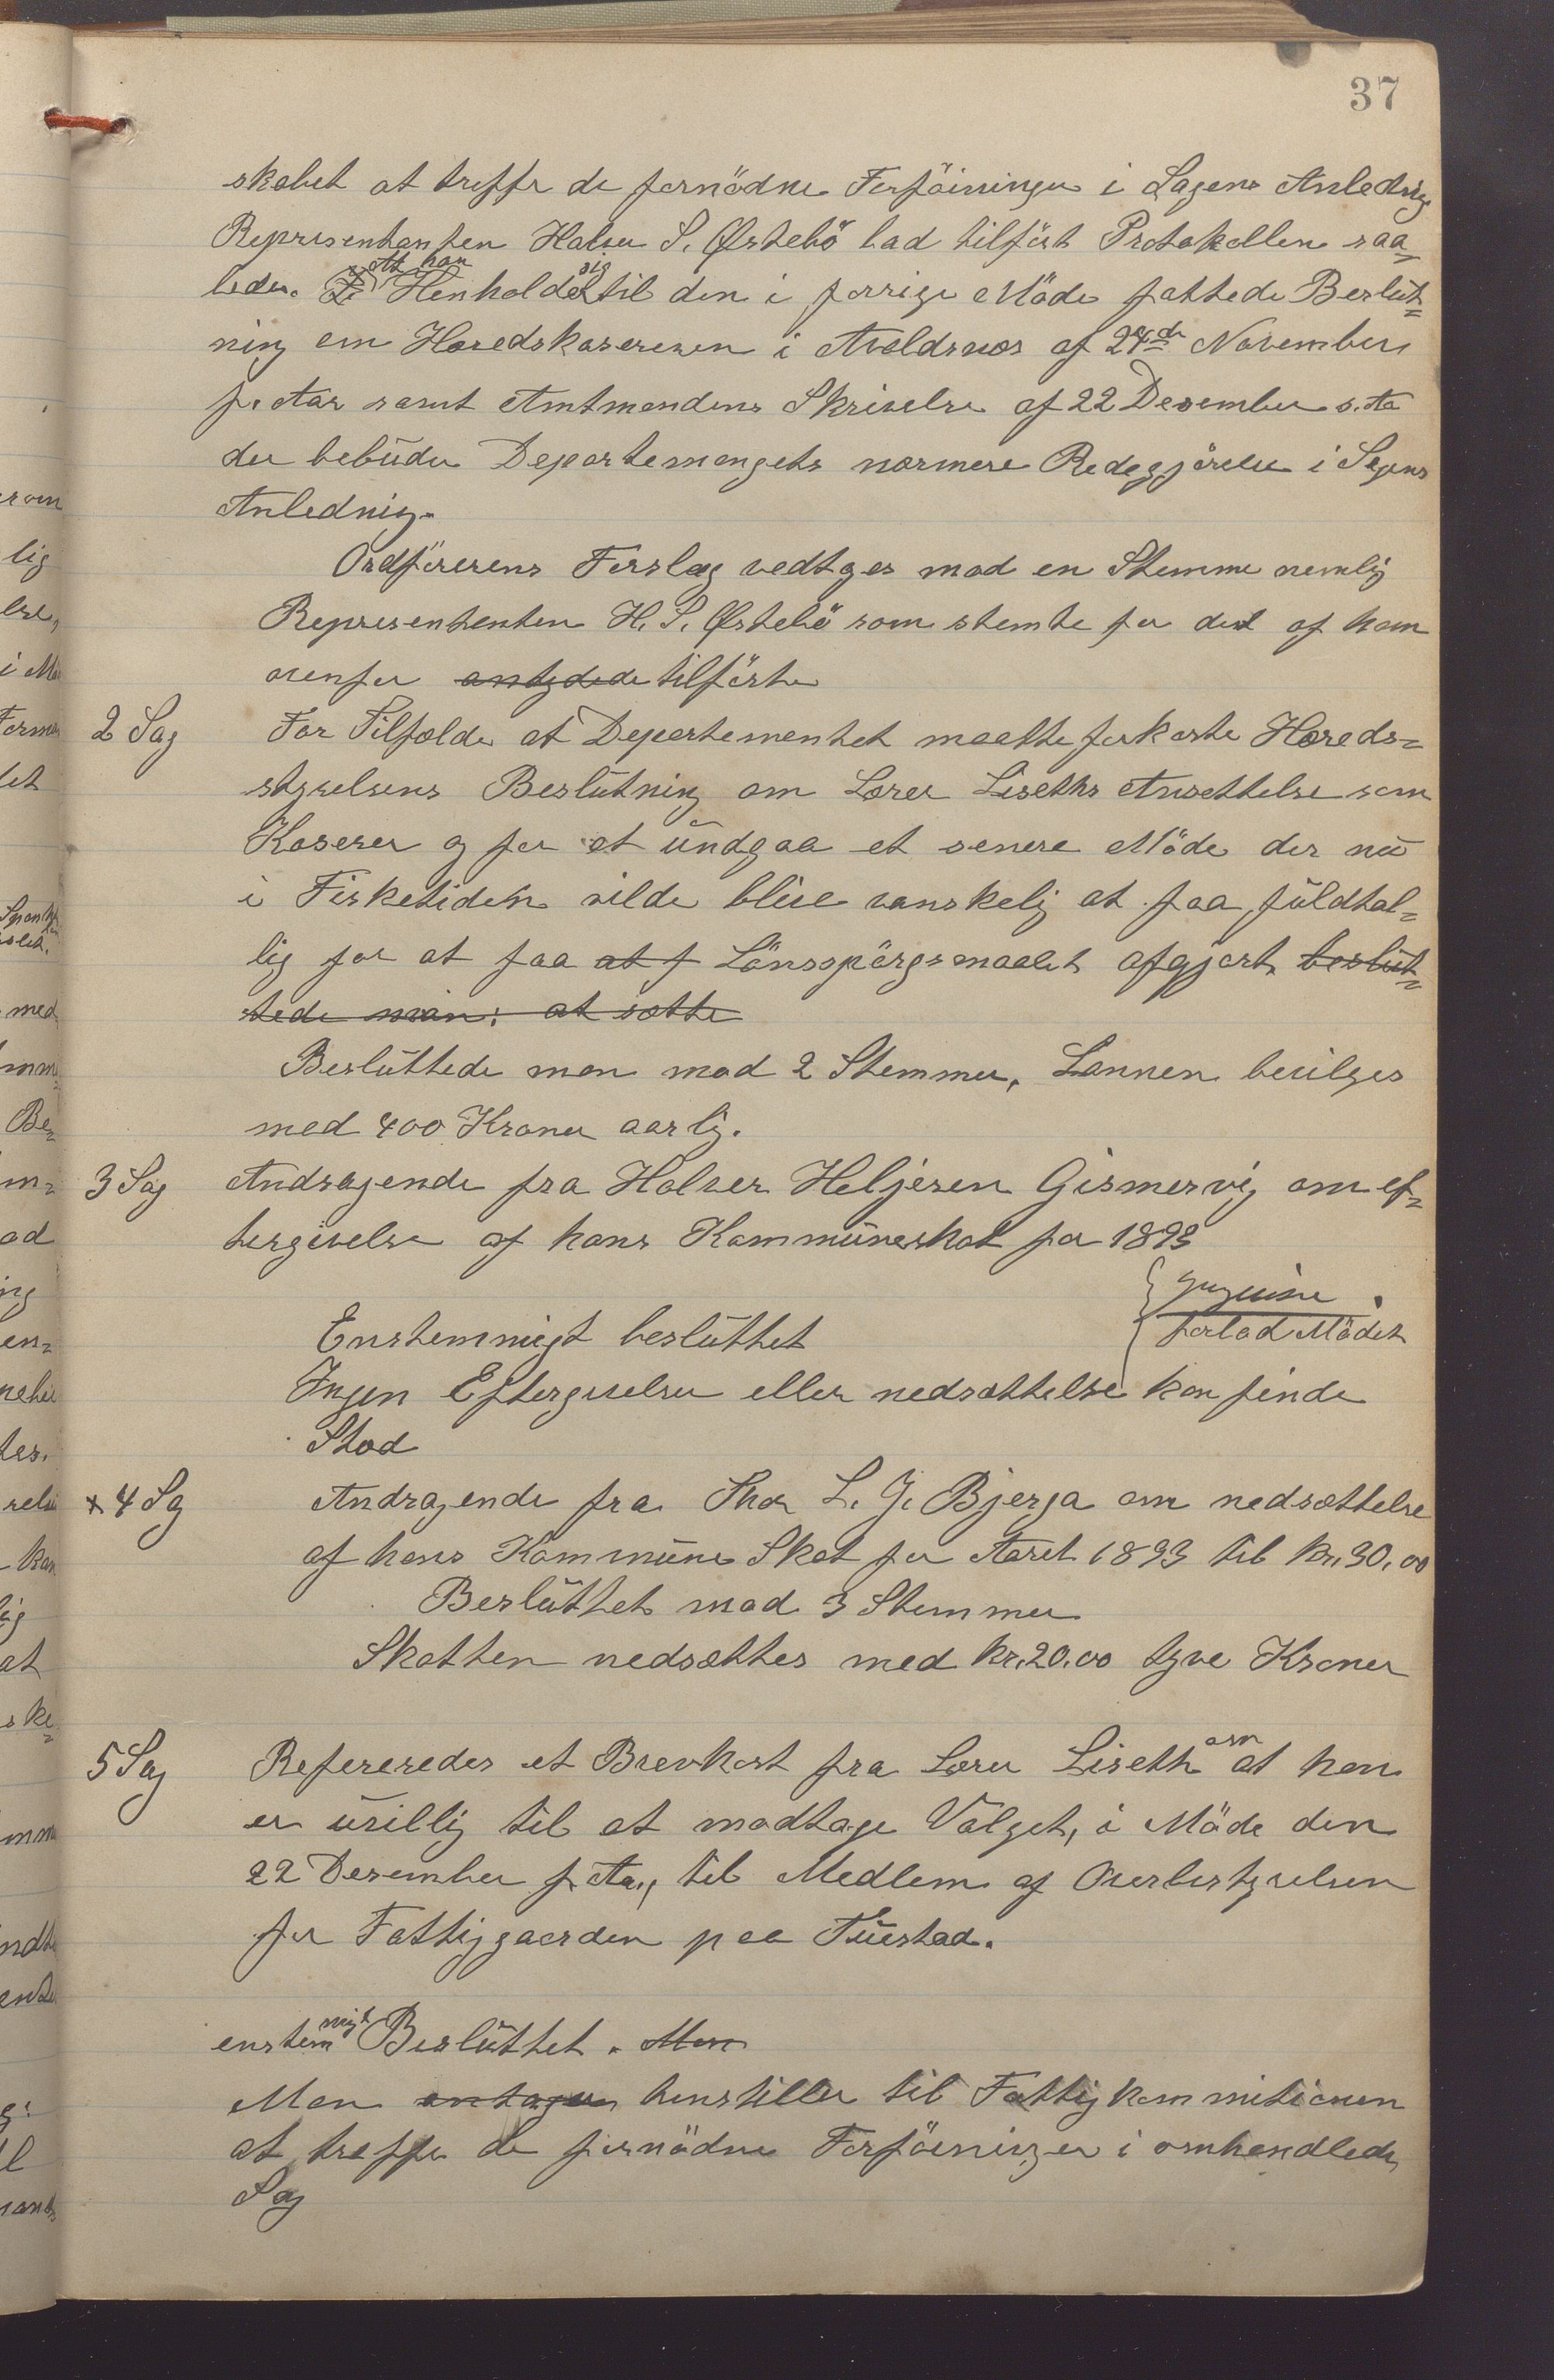 37
skabet at treffe de fornödne Forföininger i Sagens Anledning
Representanten Halvor S. Østebö lod tilfört Protokollen saa=
ledes. At han Henholder sig til den i forrige Möde fattede Beslut=
ning om Heredskasereren i Avaldsnes af 24de November
f. Aar samt Amtmandens Skrivelse af 22 Desember s. Aa
der bebuder Departemengets nærmere Redegjörelse i Sagens
Anledning.
Ordförerens Forslag vedtges mod en Stemme nemlig
Represententen H. S. Østebö som stemte for det af ham
ovenfor antydede tilförte
2 Sag For Tilfælde at Departementet maatte forkaste Hereds=
styrelsens Beslutning om Lærer Liseths Ansettelse som
Kaserer og for at undgaa et senere Möde der nu
i Fisketiden vilde blive vanskelig at faa fuldtal=
lig for at faa at f Lönsspörgsmaalet afgjort beslut=
tede man: at sætte
Besluttede man mod 2 Stemmer, Lønnen bevilges
med 400 Kroner aarlig.
3 Sag Andragende fra Halvor Heljesen Gismervig om ef=
tergivelse af hans Kommuneskat for 1893
Enstemmigt besluttet
forlod Mödet
Ingen Eftergivelse eller nedsættelse kan finde
Stad
x 4 Sag Andragende fra L. J. Bjerga om nedsættelse
af hans Kommune Skat for Aaret 1893 til kr. 30,00
Besluttet mod 3 Stemmer
Skatten nedsættes med kr. 20.00 tyve Kroner
5 Sag Refereredes et Brevkort fra Lærer Liseth om at han
er uvillig til at modtage Valget, i Möde den
22 Desember f. Aa., til Medlem af Overbestyrelsen
for Fattiggaarden paa Tuestad.
enstemmigt Besluttet. Man
Man antager henstiller til Fattigkommitionen
at treffe de fornödne Forföininger i omhandlede
Sag